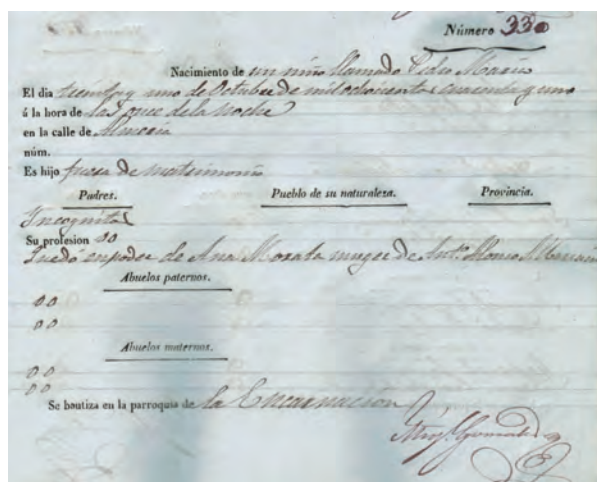 Número 330
Nacimiento de un niño llamado Pedro Maria
El dia treinta y uno de Octubre de mil ochocientos cuarenta y uno
á la hora de las once de la noche
en la calle de Almeria
núm.
Es hijo fuera de matrimonio
Padres. Pueblo de su naturaleza. Provincia.
Incognitos
Su profesion 00
Quedó en poder de Ana Morata muger de Antº Alonso
Abuelos paternos.
00
00
Abuelos maternos.
00
00
Se bautiza en la parroquia de la Encarnacion
Gonzalez